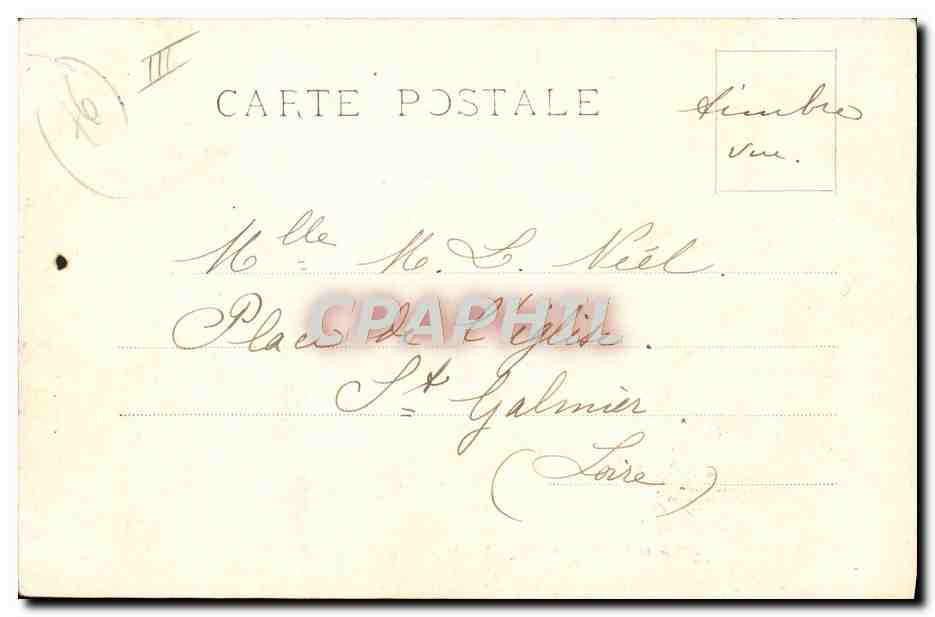 III
76
CARTE POSTALE
timbre
vue.
Mlle M. L. Néel.
Place de l'église.
St Galmier.
(Loire.)
CPAPHIL